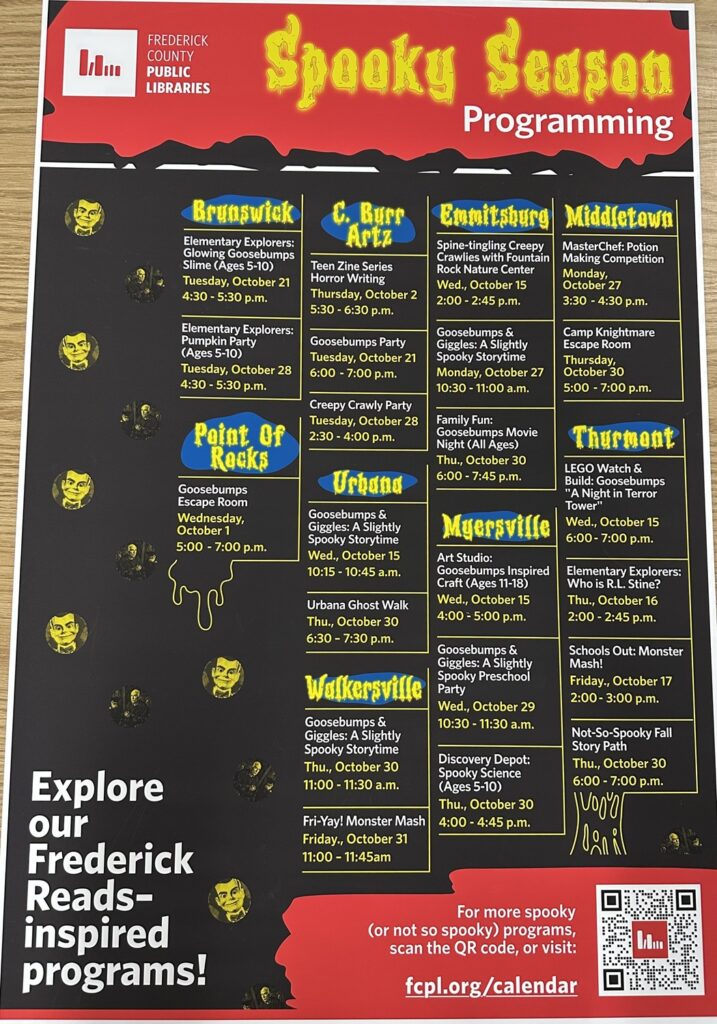 FREDERICK
COUNTY
PUBLIC
LIBRARIES
Spooky Season
Programming
Brunswick
Elementary Explorers:
Glowing Goosebumps
Slime (Ages 5-10)
Tuesday, October 21
4:30 - 5:30 p.m.
Elementary Explorers:
Pumpkin Party
(Ages 5-10)
Tuesday, October 28
4:30 - 5:30 p.m.
Point Of
Rocks
Goosebumps
Escape Room
Wednesday,
October 1
5:00 - 7:00 p.m.
C. Burr
Artz
Teen Zine Series
Horror Writing
Thursday, October 2
5:30 - 6:30 p.m.
Goosebumps Party
Tuesday, October 21
6:00 - 7:00 p.m.
Creepy Crawly Party
Tuesday, October 28
2:30 - 4:00 p.m.
Urbana
Goosebumps &
Giggles: A Slightly
Spooky Storytime
Wed., October 15
10:15 - 10:45 a.m.
Urbana Ghost Walk
Thu., October 30
6:30 - 7:30 p.m.
Walkersville
Goosebumps &
Giggles: A Slightly
Spooky Storytime
Thu., October 30
11:00 - 11:30 a.m.
Fri-Yay! Monster Mash
Friday., October 31
11:00 - 11:45am
Emmitsburg
Spine-tingling Creepy
Crawlies with Fountain
Rock Nature Center
Wed., October 15
2:00 - 2:45 p.m.
Goosebumps &
Giggles: A Slightly
Spooky Storytime
Monday, October 27
10:30 - 11:00 a.m.
Family Fun:
Goosebumps Movie
Night (All Ages)
Thu., October 30
6:00 - 7:45 p.m.
Myersville
Art Studio:
Goosebumps Inspired
Craft (Ages 11-18)
Wed., October 15
4:00 - 5:00 p.m.
Goosebumps &
Giggles: A Slightly
Spooky Preschool
Party
Wed., October 29
10:30 - 11:30 a.m.
Discovery Depot:
Spooky Science
(Ages 5-10)
Thu., October 30
4:00 - 4:45 p.m.
Middletown
MasterChef: Potion
Making Competition
Monday,
October 27
3:30 - 4:30 p.m.
Camp Knightmare
Escape Room
Thursday,
October 30
5:00 - 7:00 p.m.
Thurmont
LEGO Watch &
Build: Goosebumps
"A Night in Terror
Tower"
Wed., October 15
6:00 - 7:00 p.m.
Elementary Explorers:
Who is R.L. Stine?
Thu., October 16
2:00 - 2:45 p.m.
Schools Out: Monster
Mash!
Friday., October 17
2:00 - 3:00 p.m.
Not-So-Spooky Fall
Story Path
Thu., October 30
6:00 - 7:00 p.m.
Explore
our
Frederick
Reads-
inspired
programs!
For more spooky
(or not so spooky) programs,
scan the QR code, or visit:
fcpl.org/calendar